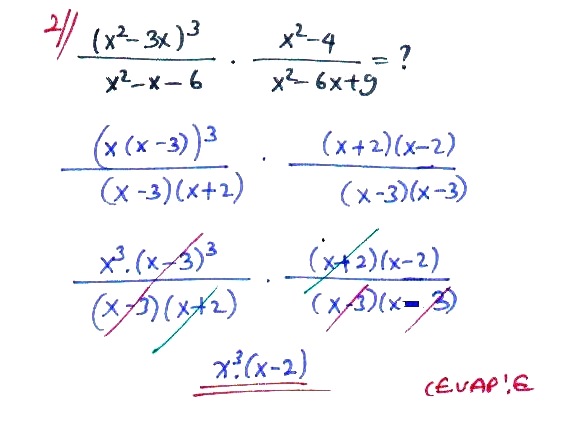 2// (x²-3x)³ / x²-x-6 . x²-4 / x²-6x+9 = ?
(x(x-3))³ / (x-3)(x+2) . (x+2)(x-2) / (x-3)(x-3)
x³.(x-3)³ / (x-3)(x+2) . (x+2)(x-2) / (x-3)(x-3)
x³.(x-2)
CEVAP:E